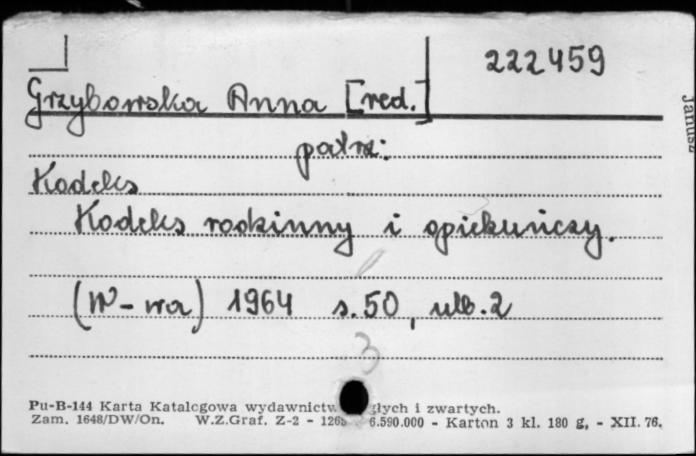 222459
Grzybowska Anna [red.]
patrz:
Kodeks
Kodeks rodzinny i opiekuńczy.
(W-wa) 1964 s. 50, nlb. 2
3
Pu-B-144 Karta Katalogowa wydawnictw głych i zwartych.
Zam. 1648/DW/On. W.Z.Graf. Z-2 - 126 6.590.000 - Karton 3 kl. 180 g, - XII. 76.
Janusz